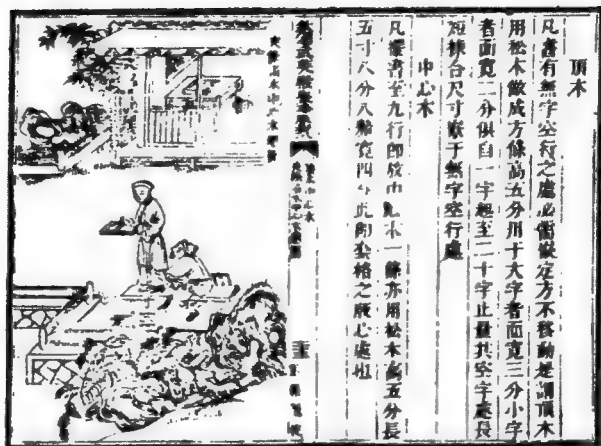 頂木
凡書有無字空行之處必嵌定方不移動是謂頂木
用松木做成方條高五分用于大字者面寬三分小字
者面寬二分俱自一字起至二十字止量其空字處長
短揀合尺寸嵌于無字空行處
中心木
凡擺書至九行卽放中心木一條亦用松木高五分長
五寸八分八釐寬四分此卽套格之版心處也
武英殿聚珍版程式
夾條頂木中心木